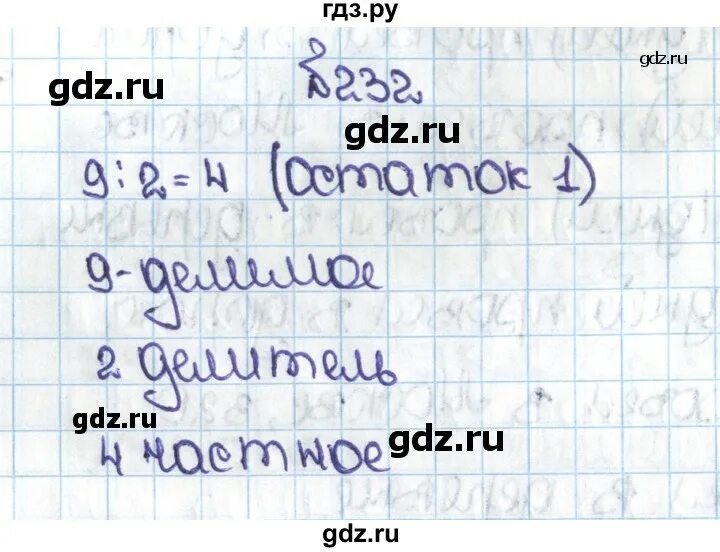 гдз.ру
gdz.ru
gdz.ru
№232
gdz.ru
9:2=4 (остаток 1)
9-делимое
gdz.ru
gdz.ru
2 делитель
gdz.ru
gdz.ru
4 частное
gdz.ru